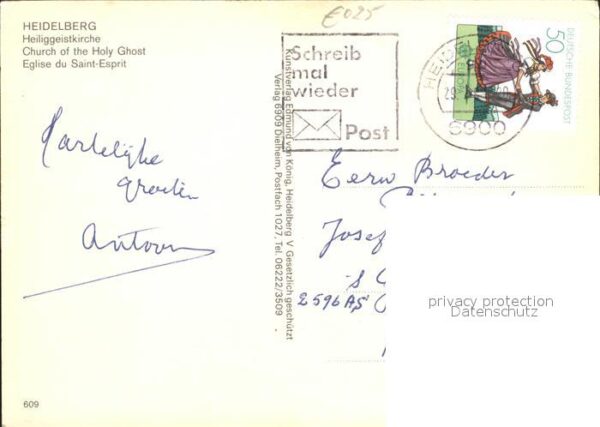 HEIDELBERG
Heiliggeistkirche
Church of the Holy Ghost
Eglise du Saint-Esprit
€025
Schreib
mal
wieder
Post
6900
50
DEUTSCHE BUNDESPOST
Hartelijke
groeten
Antoon
Kunstverlag Edmund von König, Heidelberg V Gesetzlich geschützt
Verlag 6909 Dielheim, Postfach 1027, Tel. 06222/3509
Eerw Broeder
Josef
2596AS
privacy protection
Datenschutz
609